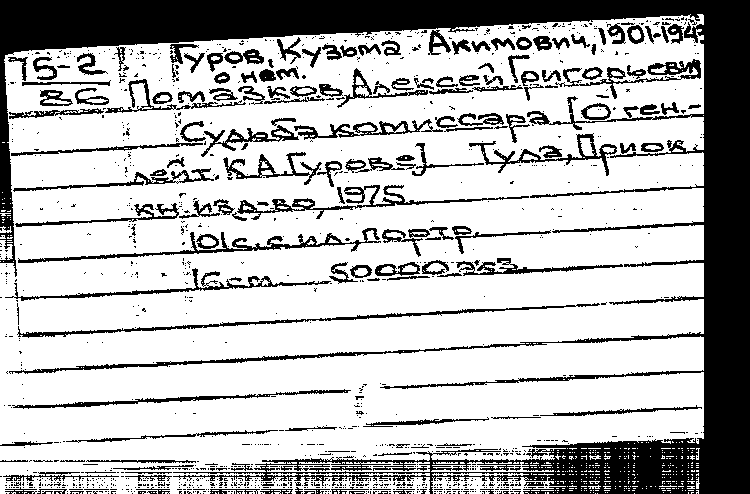 75-2 Гуров, Кузьма Акимович, 1901-1943
о нем.
86 Потазков, Алексей Григорьевич
Судьба комиссара. [О ген.-
лейт. К.А. Гурове]. Тула, Приок.
кн. изд-во, 1975.
101 с. с ил., портр.
16 см. 50000 экз.